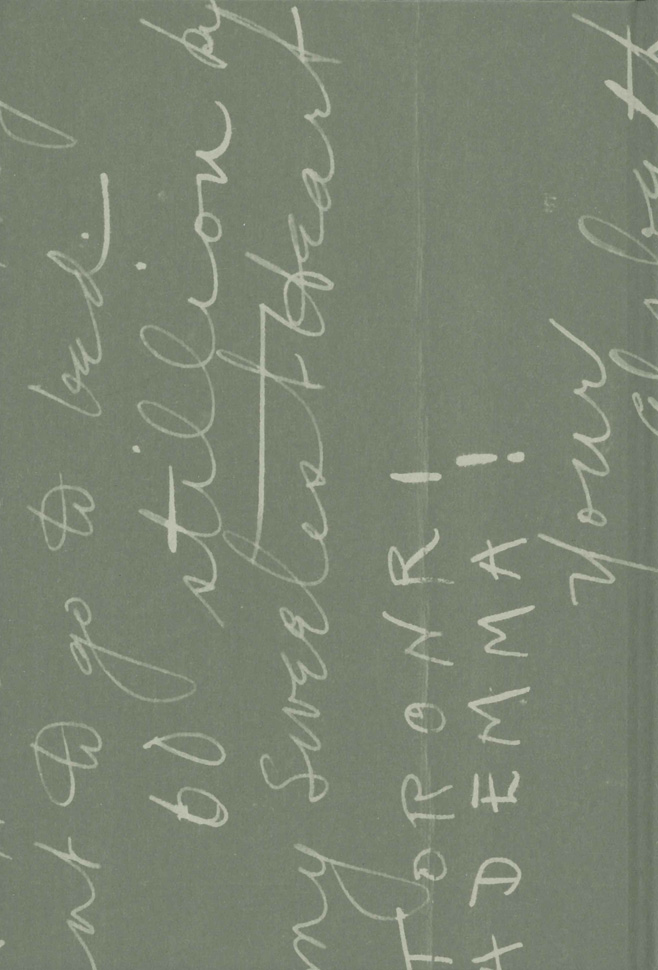 to go to bed.
60 stillion by
my Sweetest Heart
TORONRI
DEMMA!
Your
by